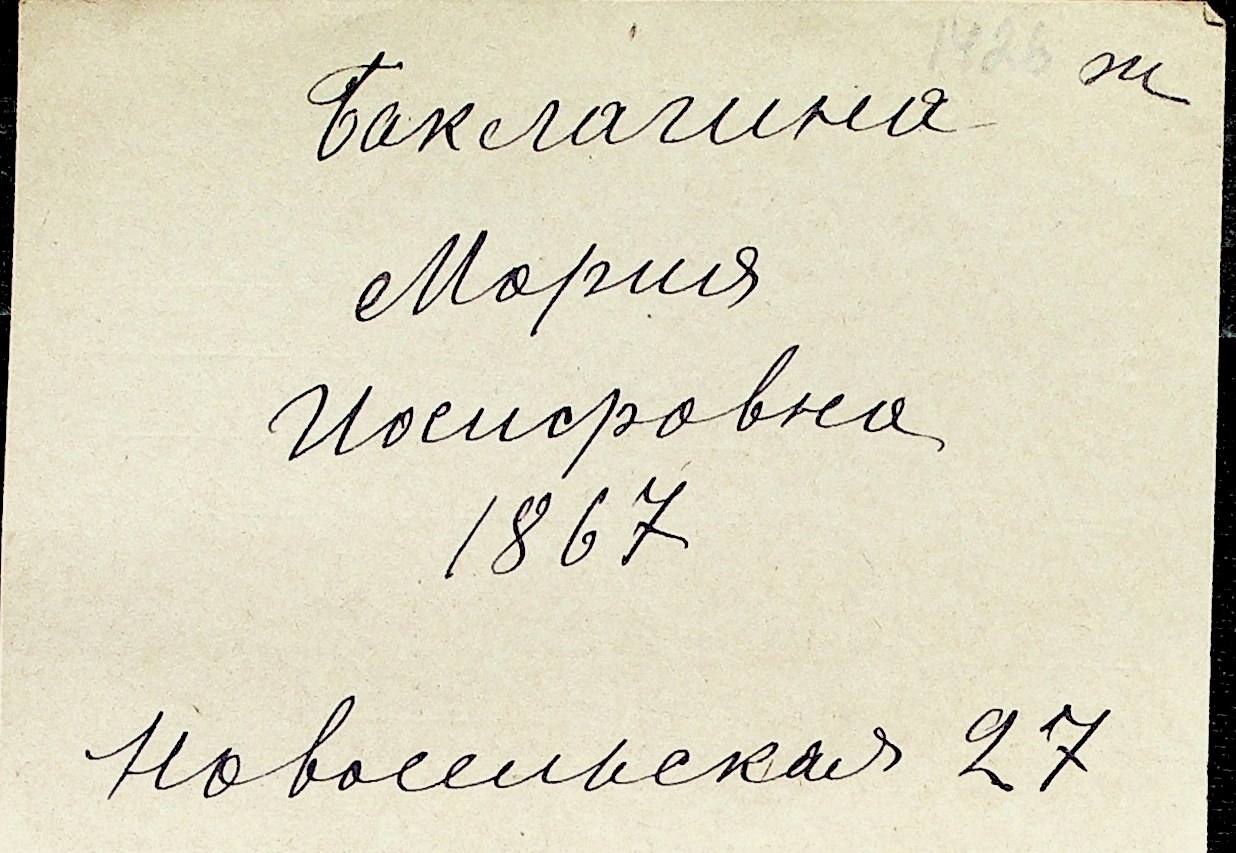 1426 т
Баклагина
Мария
Иосифовна
1867
Новосельская 27